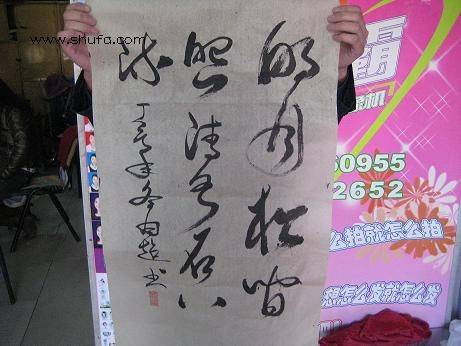 www.shufa.com
明月松間
照清泉石上
流
丁亥年冬 超书
霸
机
60955
2652
么拍就怎么拍
想怎么发就怎么发